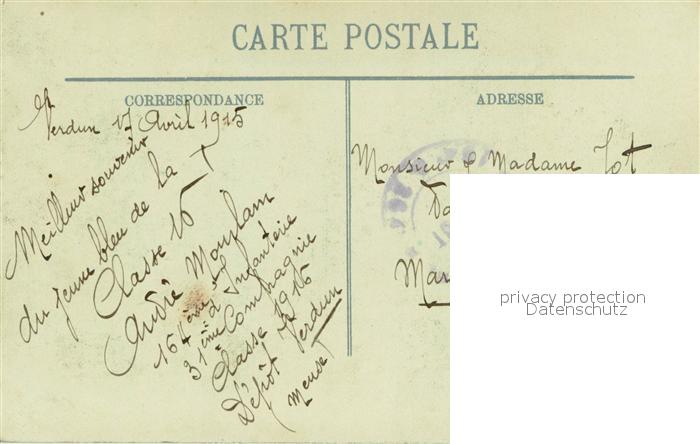 CARTE POSTALE
CORRESPONDANCE
Verdun 17 Avril 1915
Meilleur souvenir
du jeune bleu de la
Classe 16
André
164ème d'Infanterie
31ème Compagnie
Classe 1916
Dépôt Verdun
Meuse
ADRESSE
Monsieur & Madame Tot
privacy protection
Datenschutz